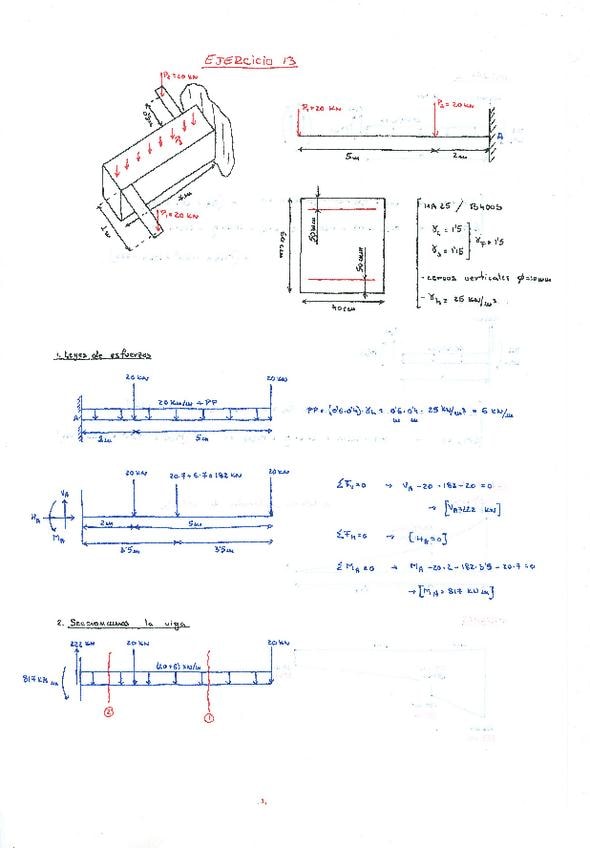 EJERCICIO 13
P2=20 KN
P1=20 KN
P1=20 KN
P2=20 KN
A
5m
2m
50mm
50mm
60cm
40cm
HA25 / B400S
γc = 1'5
γs = 1'15
γf = 1'5
- cercos verticales φ=10mm
- γh = 25 KN/m³
1. Leyes de esfuerzos
20 KN
20 KN
20 KN/m + PP
A
2m
5m
PP = (0'6·0'4)·γh = 0'6 · 0'4 · 25 KN/m³ = 6 KN/m
m m
20 KN
20·7+6·7=182 KN
20 KN
VA
HA
MA
2m
5m
3'5m
3'5m
ΣFV=0 → VA -20 -182 -20 = 0
→ [VA=222 KN]
ΣFH=0 → [HA=0]
ΣMA=0 → MA -20·2 -182·3'5 -20·7=0
→ [MA = 817 KN m]
2. Seccionamos la viga
222 KN
20 KN
20 KN
(20+6) KN/m
817 KN m
2
1